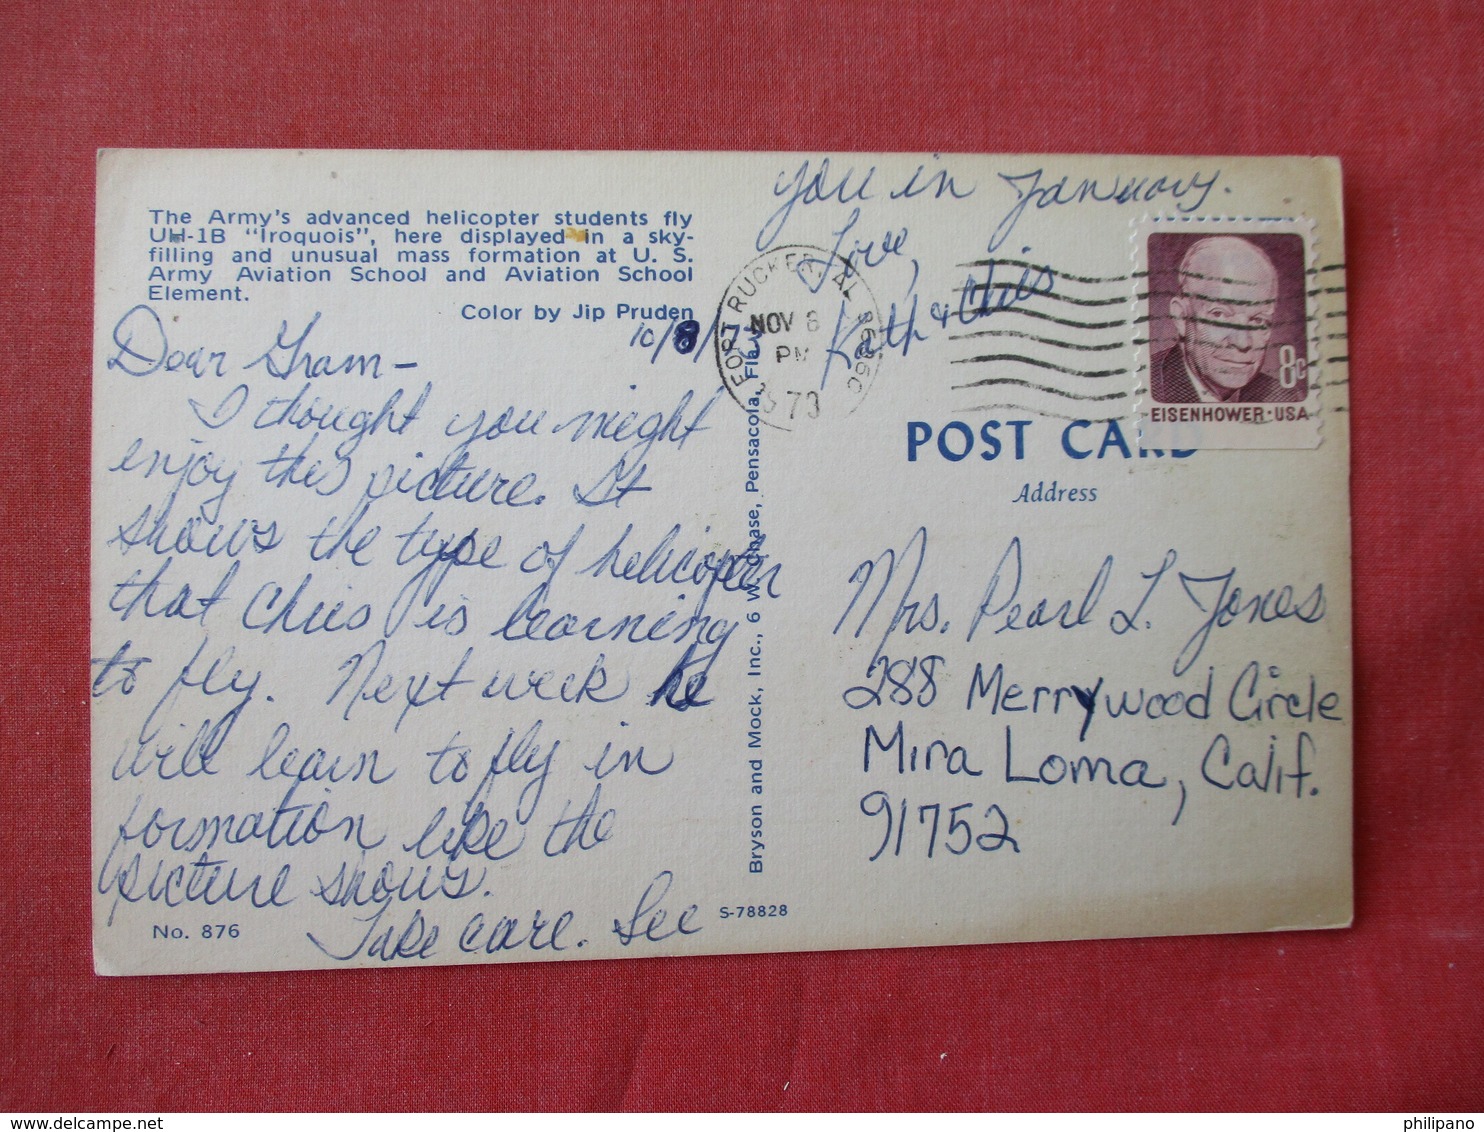 The Army's advanced helicopter students fly
UH-1B "Iroquois", here displayed in a sky-
filling and unusual mass formation at U. S.
Army Aviation School and Aviation School
Element.
Color by Jip Pruden
10/8/7
Dear Gram-
I thought you might
enjoy this picture. It
shows the type of helicopter
that Chris is learning
to fly. Next week he
will learn to fly in
formation like the
picture shows.
Take care. See
you in January.
Love,
Kath & Chris
No. 876
S-78828
Bryson and Mock, Inc., 6 W. Chase, Pensacola, Fla.
FORT RUCKER, AL 36360
NOV 8
PM
1973
EISENHOWER·USA
8c
POST CARD
Address
Mrs. Pearl L. Jones
288 Merrywood Circle
Mira Loma, Calif.
91752
delcampe.net
philipano